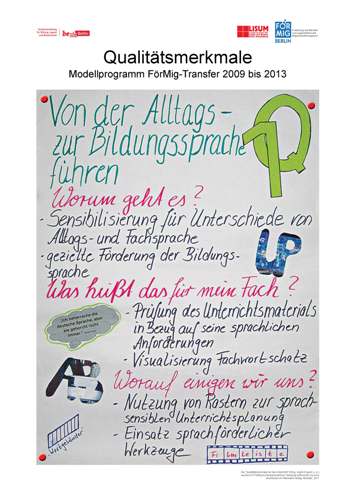 be Berlin
LISUM
FÖR
MIG
BERLIN
Qualitätsmerkmale
Modellprogramm FörMig-Transfer 2009 bis 2013
Von der Alltags-
zur Bildungssprache
führen
Q1
Worum geht es?
- Sensibilisierung für Unterschiede von
Alltags- und Fachsprache
- gezielte Förderung der Bildungs-
sprache
LP
Was heißt das für mein Fach?
- Prüfung des Unterrichtsmaterials
in Bezug auf seine sprachlichen
Anforderungen
- Visualisierung Fachwortschatz
Ich beherrsche die
deutsche Sprache, aber
sie gehorcht nicht
immer.
AB
Worauf einigen wir uns?
- Nutzung von Rastern zur sprach-
sensiblen Unterrichtsplanung
- Einsatz sprachförderlicher
Werkzeuge
Wortgeländer
Filmleiste